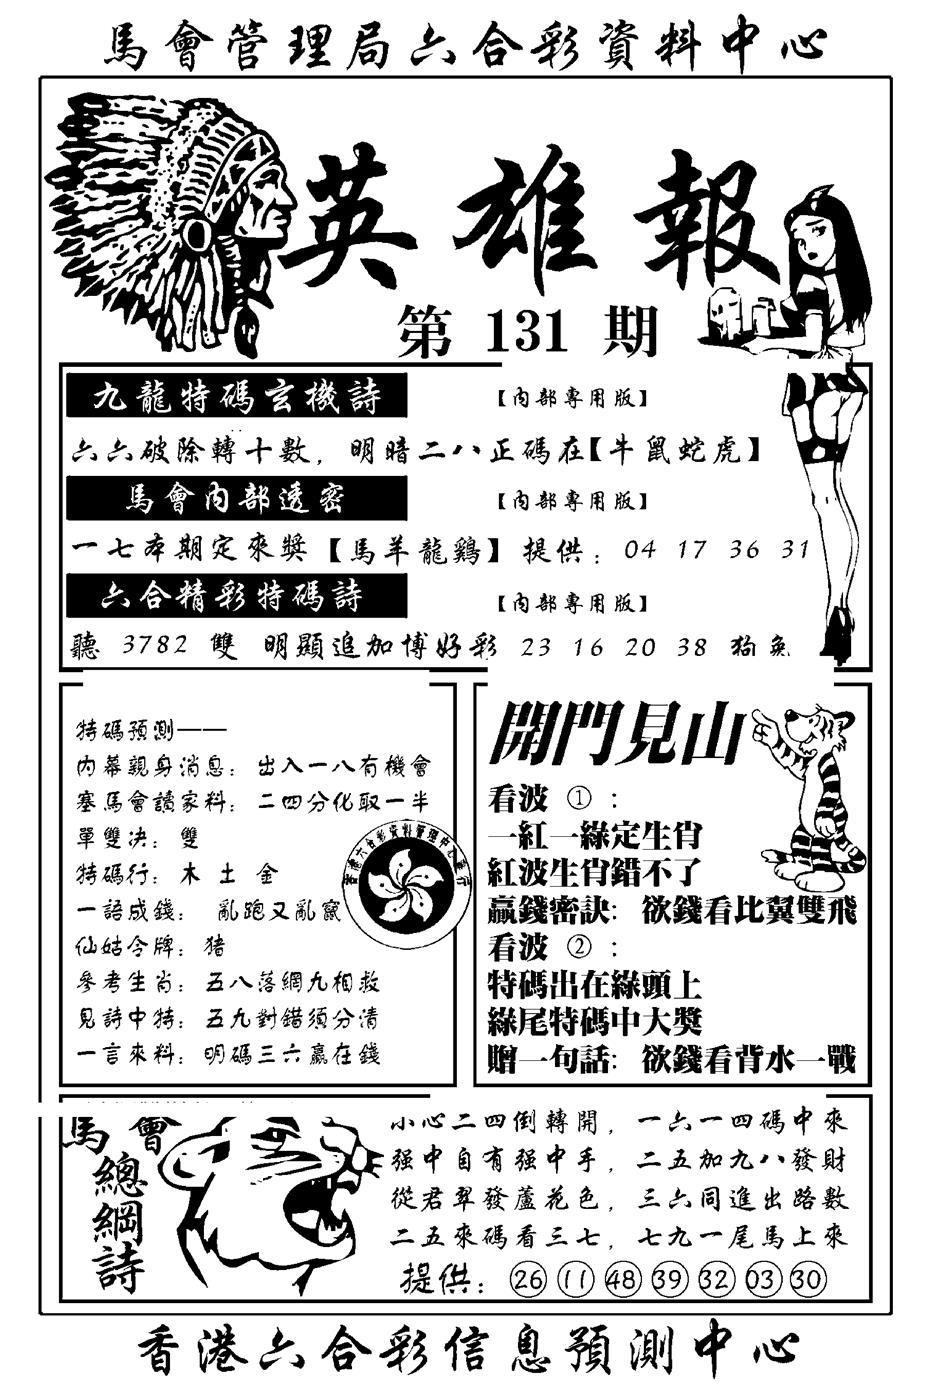 馬會管理局六合彩資料中心
英雄報
第 131 期
九龍特碼玄機詩 【內部專用版】
六六破除轉十數，明暗二八正碼在【牛鼠蛇虎】
馬會內部透密 【內部專用版】
一七本期定來獎【馬羊龍鷄】提供：04 17 36 31
六合精彩特碼詩 【內部專用版】
聽 3782 雙 明顯追加博好彩 23 16 20 38 狗兔
特碼預測——
內幕親身消息：出入一八有機會
塞馬會讀家料：二四分化取一半
單雙决：雙
特碼行：木 土 金
一語成錢： 亂跑又亂竄
仙姑令牌：猪
參考生肖：五八落網九相救
見詩中特：五九對錯須分清
一言來料：明碼三六贏在錢
開門見山
看波 ①：
一紅一綠定生肖
紅波生肖錯不了
贏錢密訣：欲錢看比翼雙飛
看波 ②：
特碼出在綠頭上
綠尾特碼中大獎
贈一句話：欲錢看背水一戰
馬會
總綱詩
小心二四倒轉開，一六一四碼中來
强中自有强中手，二五加九八發財
從君翠發蘆花色，三六同進出路數
二五來碼看三七，七九一尾馬上來
提供：26 11 48 39 32 03 30
香港六合彩信息預測中心